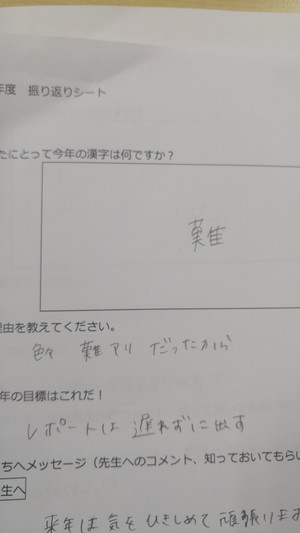 年度 振り返りシート
たにとって今年の漢字は何ですか？
難
理由を教えてください。
色々 難アリ だったから
年の目標はこれだ！
レポートは 遅れずに出す
ちへメッセージ（先生へのコメント、知っておいてもらい
生へ
来年は気をひきしめて頑張ります